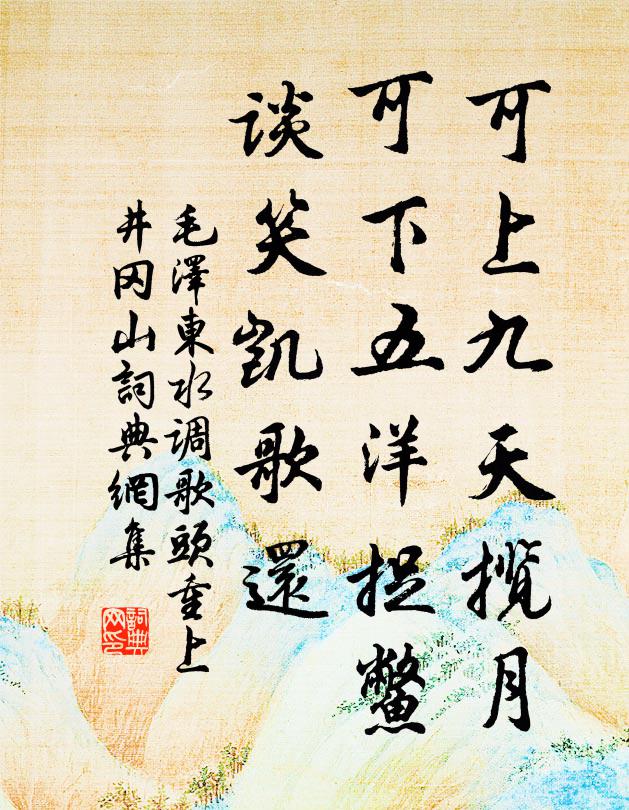 可上九天揽月
可下五洋捉鱉
談笑凱歌還
毛澤東水调歌頭重上
井冈山詞典網集
詞典网印